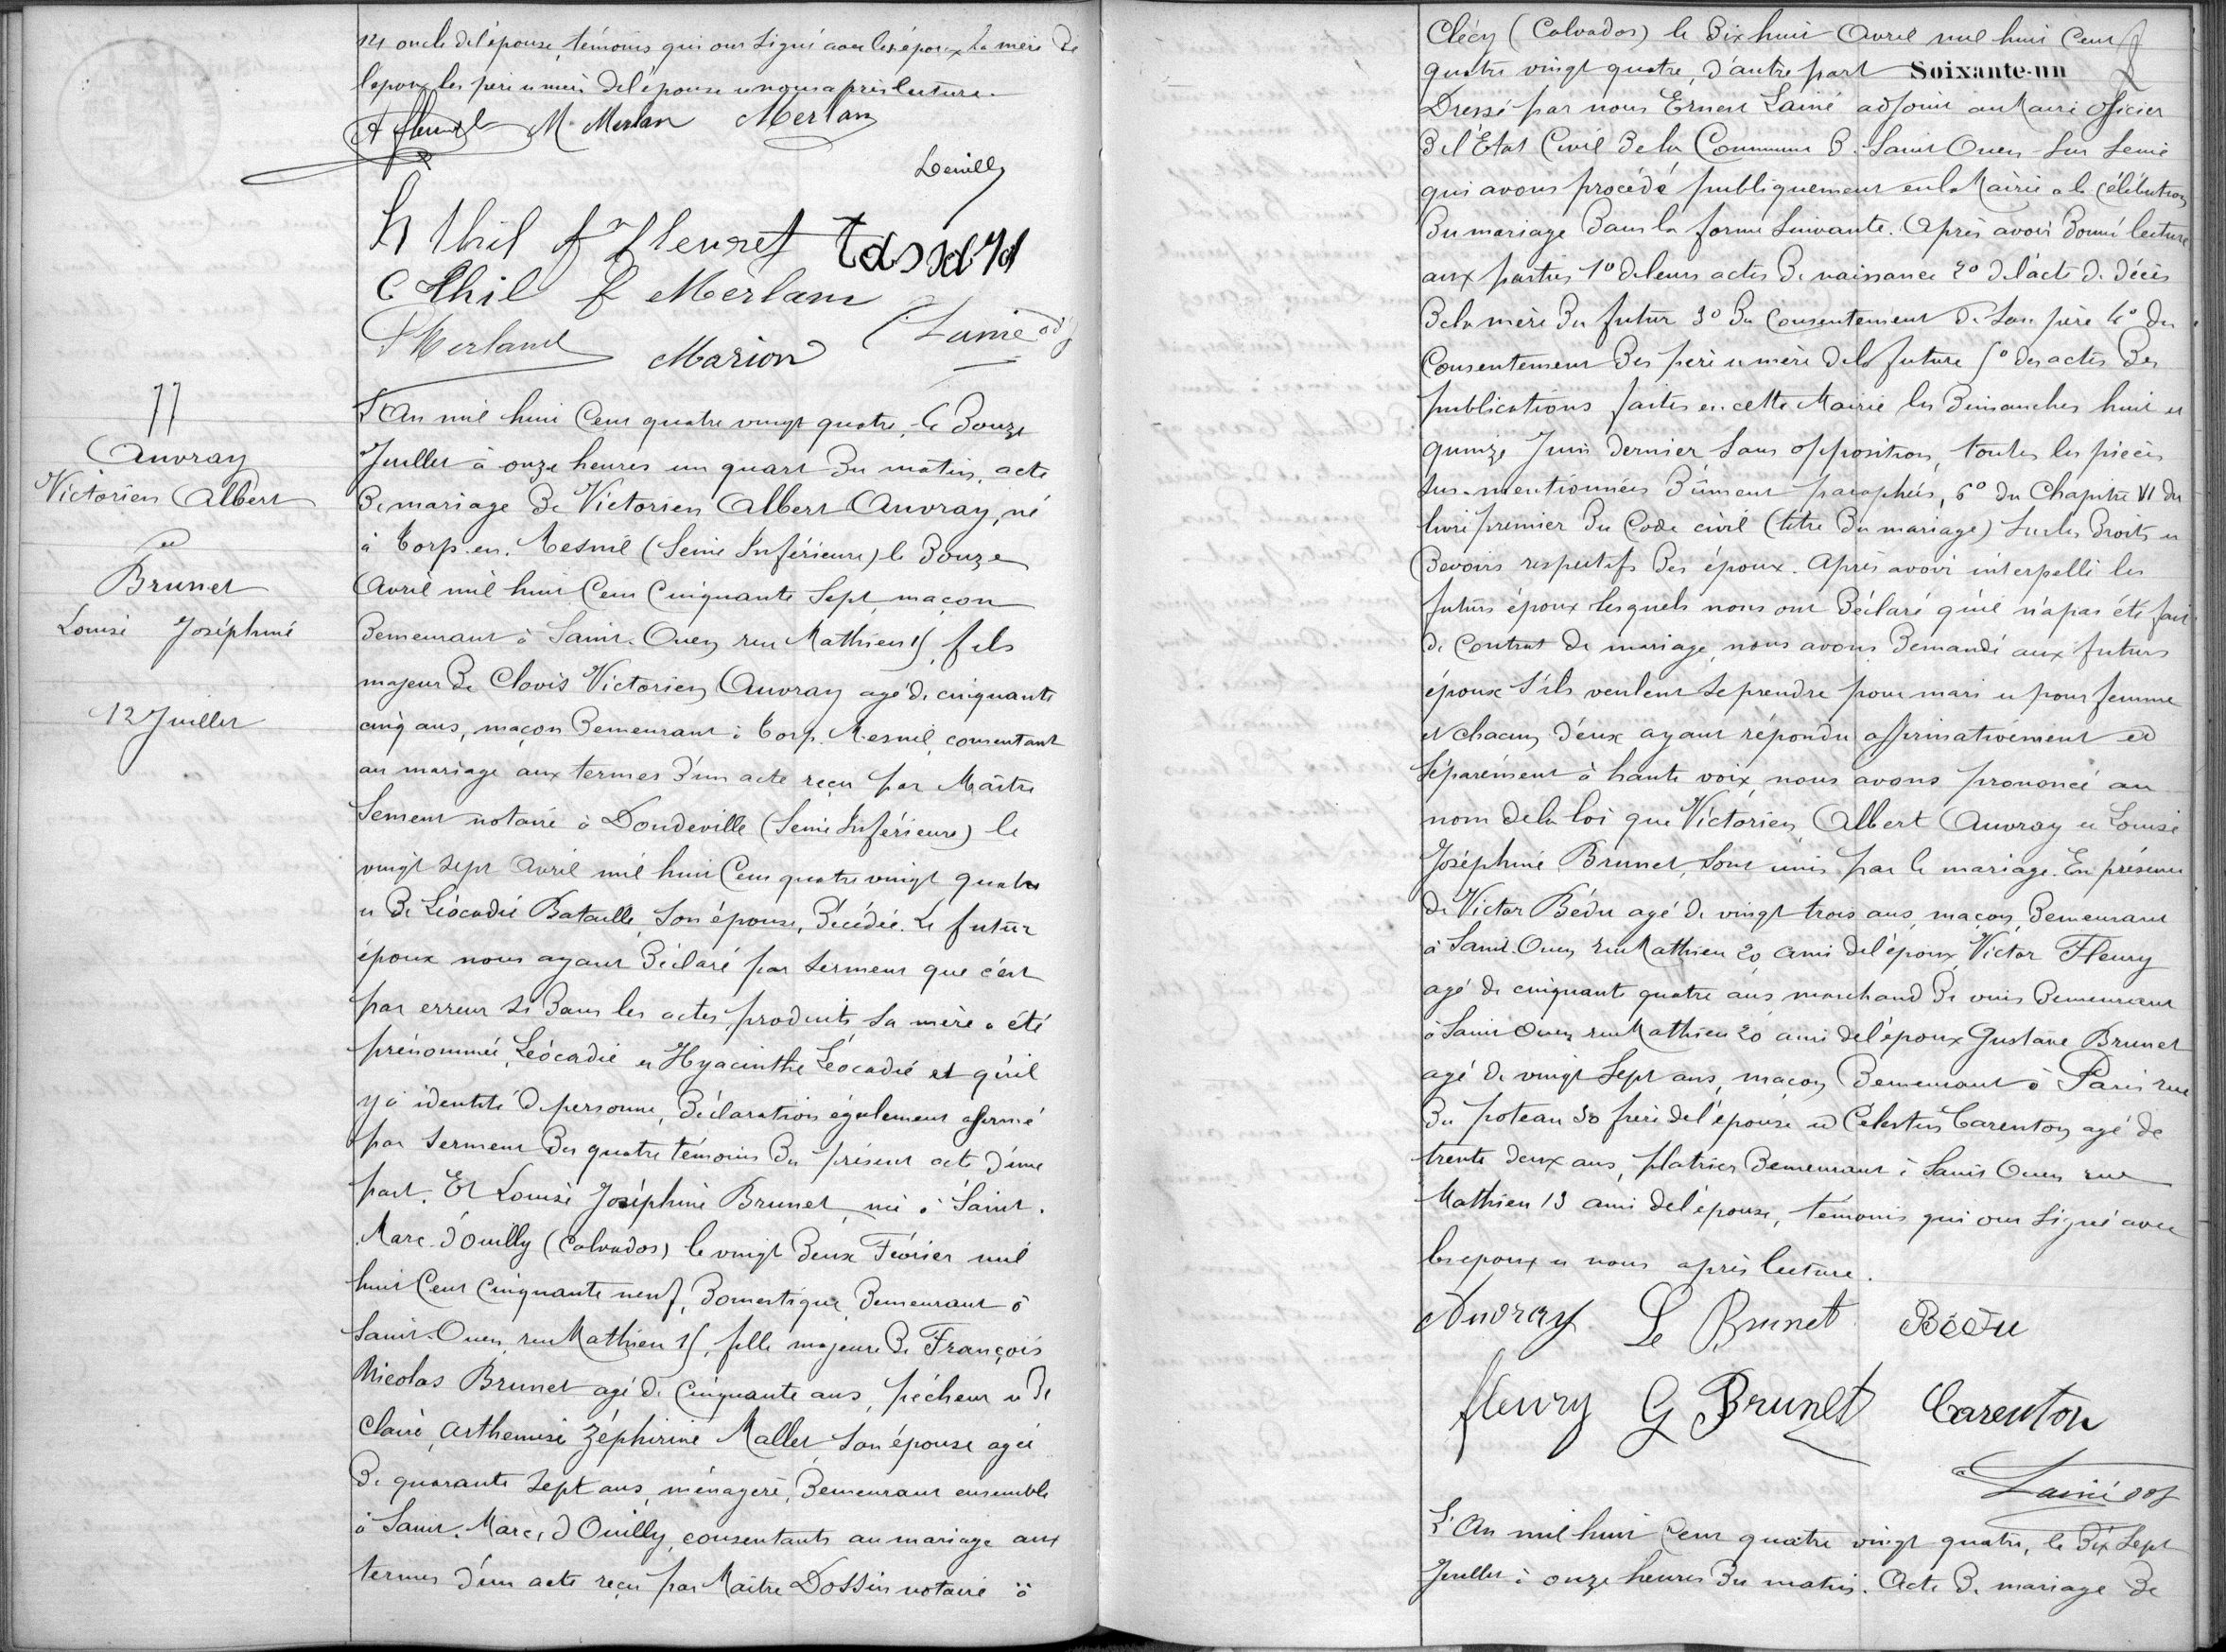 121 oncle de l'épouse, témoins qui ont signé avec les époux, la mère de
l'époux, les père et mère de l'épouse et nous après lecture.
M Merlan Merlan
Deuilly
h thil f fleuret
C thil F Merlan
Merland Marion Lainé adj
77
Auvray
Victorien Albert
et
Brunet
Louise Joséphine
12 Juillet
L'An mil huit cent quatre vingt quatre, le Douze
Juillet à onze heures un quart du matin, acte
de mariage de Victorien Albert Auvray, né
à Torp-en-Mesnil (Seine Inférieure) le Douze
Avril mil huit cent cinquante sept, maçon
demeurant à Saint-Ouen, rue Mathieu 15, fils
majeur de Clovis Victorien Auvray agé de cinquante
cinq ans, maçon demeurant à Torp Mesnil, consentant
au mariage aux termes d'un acte reçu par Maître
Sement notaire à Doudeville (Seine Inférieure) le
vingt sept Avril mil huit cent quatre vingt quatre
et de Léocadie Bataille, son épouse, décédée. Le futur
époux nous ayant déclaré par serment que c'est
par erreur si dans les actes produits sa mère a été
prénommée, Léocadie et Hyacinthe Léocadie et qu'il
y a identité de personne, déclaration également affirmé
par serment des quatre témoins du présent acte d'une
part. Et Louise Joséphine Brunet, née à Saint-
Marc-d'Ouilly (Calvados) le vingt deux Février mil
huit cent cinquante neuf, domestique demeurant à
Saint-Ouen, rue Mathieu 15, fille majeure de François
Nicolas Brunet agé de cinquante ans, pécheur et de
Claire, Arthemise Zéphirine Mallet son épouse agée
de quarante sept ans, ménagère, demeurant ensemble
à Saint-Marc, d'Ouilly, consentants au mariage aux
termes d'un acte reçu par Maître Dossin notaire à
Clécy (Calvados) le Dix huit Avril mil huit cent
quatre vingt quatre, d'autre part Soixante-un
Dressé par nous Ernest Lainé adjoint au Maire officier
de l'Etat Civil de la Commune de Saint Ouen-sur Seine
qui avons procédé publiquement en la Mairie a la célébration
du mariage dans la forme suivante. Après avoir donné lecture
aux parties 1º de leurs actes de naissance 2º de l'acte de décès
de la mère du futur 3º du consentement de son père 4º du
consentement des père et mère de la future 5º des actes des
publications faites en cette Mairie les Dimanches huit et
quinze Juin dernier sans opposition, toutes les pièces
sus-mentionnées dûment paraphées, 6º du Chapitre VI du
livre premier du Code civil (titre du mariage) sur les Droits et
Devoirs respectifs des époux. Après avoir interpellé les
futurs époux lesquels nous ont déclaré qu'il n'a pas été fait
de contrat de mariage, nous avons demandé aux futurs
époux s'ils veulent se prendre pour mari et pour femme
et chacun d'eux ayant répondu affirmativement et
séparément à haute voix, nous avons prononcé au
nom de la loi que Victorien Albert Auvray et Louise
Joséphine Brunet, sont unis par le mariage. En présence
de Victor Bédu agé de vingt trois ans, maçon, demeurant
à Saint-Ouen rue Mathieu 20 ami de l'époux, Victor Fleury
agé de cinquante quatre ans marchand de vins demeurant
à Saint Ouen rue Mathieu 20 ami de l'époux Gustave Brunet
agé de vingt sept ans, maçon, demeurant à Paris rue
du poteau 30 frère de l'épouse et Célestin Carenton, agé de
trente deux ans, platrier demeurant à Saint Ouen rue
Mathieu 13 ami de l'épouse, témoins qui ont signé avec
les époux et nous après lecture.
Auvray Le Brunet Bédu
fleury G Brunet Carenton
Lainé adj
L'An mil huit cent quatre vingt quatre, le Dix Sept
Juillet à onze heures du matin. Acte de mariage de